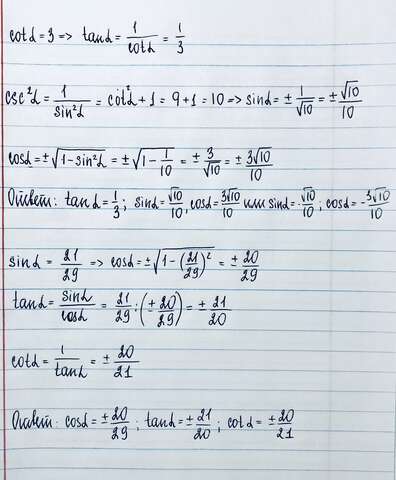 cotα = 3 => tanα = 1/cotα = 1/3
csc²α = 1/sin²α = cot²α + 1 = 9 + 1 = 10 => sinα = ± 1/√10 = ± √10/10
cosα = ±√(1 - sin²α) = ±√(1 - 1/10) = ± 3/√10 = ± 3√10/10
Ответ: tanα = 1/3; sinα = √10/10, cosα = 3√10/10 или sinα = -√10/10; cosα = -3√10/10
sinα = 21/29 => cosα = ±√(1 - (21/29)²) = ± 20/29
tanα = sinα/cosα = 21/29 : (± 20/29) = ± 21/20
cotα = 1/tanα = ± 20/21
Ответ: cosα = ± 20/29; tanα = ± 21/20; cotα = ± 20/21